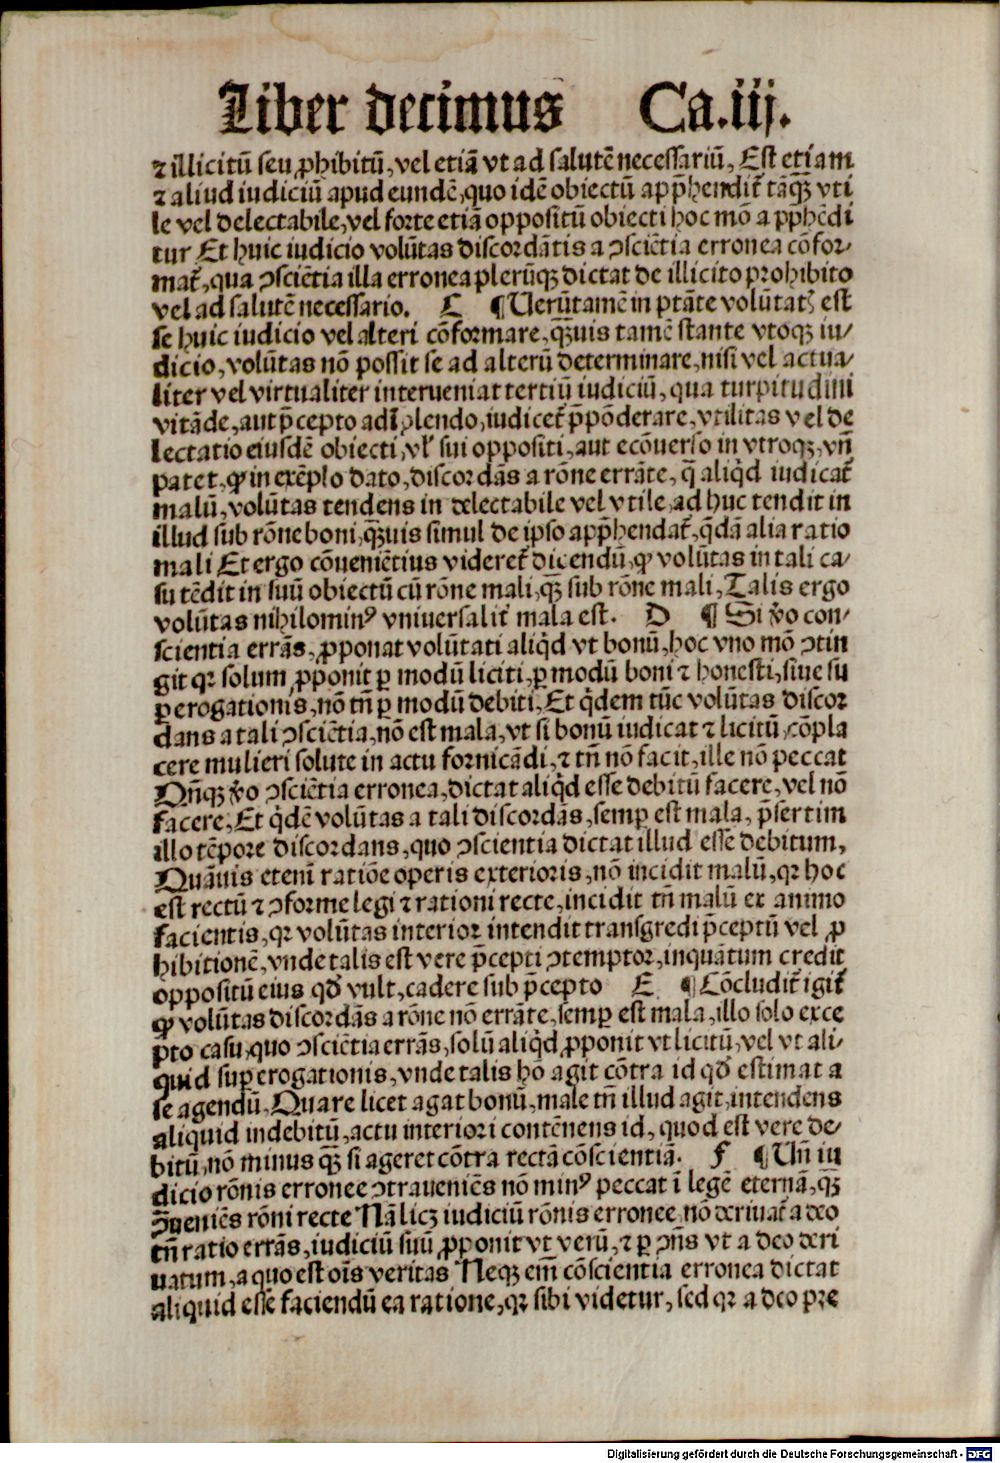 Liber decimus Ca.iij.
⁊ illicitū seu ꝓhibitū, vel etiā vt ad salutē necessariū, Est etiam
⁊ aliud iudiciū apud eundē, quo idē obiectū app̄hendit᷑ tāqꝫ vti
le vel delectabile, vel forte etiā oppositū obiecti hoc mō a pp̄hēdi
tur Et huic iudicio volūtas discordātis a ↄsciētia erronea cōfor⸗
mat᷑, qua ↄsciētia illa erronea plerūqꝫ dictat de illicito prohibito
vel ad salutē necessario. C ¶ Uerūtamē in ptāte volūtatꝭ est
se huic iudicio vel alteri cōformare, qꝫ̄uis tamē stante vtoqꝫ iu⸗
dicio, volūtas nō possit se ad alterū determinare, nisi vel actua⸗
liter vel virtualiter interueniat tertiū iudiciū, qua turpitudini
vitāde, aut p̄cepto adīplendo, iudicet᷑ p̄pōderare, vtilitas vel de
lectatio eiusdē obiecti, vl' sui oppositi, aut ecōuerso in vtroqꝫ, vn̄
patet, ꝙ in exēplo dato, discordās a rōne errāte, q̄ aliqͥd iudicat᷑
malū, volūtas tendens in delectabile vel vtile, ad huc tendit in
illud sub rōne boni, qꝫ̄uis simul de ipso app̄hendat᷑, q̄dā alia ratio
mali Et ergo cōueniētius videret᷑ dicendū, ꝙ volūtas in tali ca⸗
su tēdit in suū obiectū cū rōne mali, qꝫ̄ sub rōne mali, Talis ergo
volūtas nihilominꝰ vniuersalit᷑ mala est. D ¶ Si v̊o con⸗
scientia errās, ꝓponat volūtati aliqͥd vt bonū, hoc vno mō ↄtin
git qꝛ solum ꝓponit ꝑ modū liciti, ꝑ modū boni ⁊ honesti, siue su
ꝑerogationis, nō tn̄ ꝑ modū debiti, Et qͥdem tūc volūtas discor
dans a tali ↄsciētia, nō est mala, vt si bonū iudicat ⁊ licitū, cōpla
cere mulieri solute in actu fornicādi, ⁊ tn̄ nō facit, ille nō peccat
Qn̄qꝫ v̊o ↄsciētia erronea, dictat aliqͥd esse debitū facere, vel nō
facere, Et qͥdē volūtas a tali discordās, semꝑ est mala, p̄sertim
illo tēpore discordans, quo ↄscientia dictat illud esse debitum,
Quāuis etenī ratiōe operis exterioris, nō incidit malū, qꝛ hoc
est rectū ⁊ ↄforme legi ⁊ rationi recte, incidit tn̄ malū ex animo
facientis, qꝛ volūtas interior intendit transgredi p̄ceptū vel ꝓ
hibitionē, vnde talis est vere p̄cepti ↄtemptor, inquātum credit
oppositū eius qd̄ vult, cadere sub p̄cepto E ¶ Cōcludit᷑ igit᷑
ꝙ volūtas discordās a rōne nō errāte, semꝑ est mala, illo solo exce
pto casu, quo ↄsciētia errās, solū aliqͥd ꝓponit vt licitū, vel vt ali⸗
quid suꝑerogationis, vnde talis hō agit cōtra id qd̄ estimat a
se agendū, Quare licet agat bonū, male tn̄ illud agit, intendens
aliquid indebitū, actu interiori contēnens id, quod est vere de⸗
bitū, nō minus qꝫ̄ si ageret cōtra rectā cōscientiā. F ¶ Un̄ iu
dicio rōnis erronee ↄtraueniēs nō minꝰ peccat ī legē eternā, qꝫ̄
ↄ̄ueniēs rōni recte Nā licꝫ iudiciū rōnis erronee, nō deriuat᷑ a deo
tn̄ ratio errās, iudiciū suū ꝓponit vt verū, ⁊ ꝑ ↄn̄s vt a deo deri
uatum, a quo est oīs veritas Neqꝫ em̄ cōscientia erronea dictat
aliquid esse faciendū ea ratione, qꝛ sibi videtur, sed qꝛ a deo pre
Digitalisierung gefördert durch die Deutsche Forschungsgemeinschaft - DFG